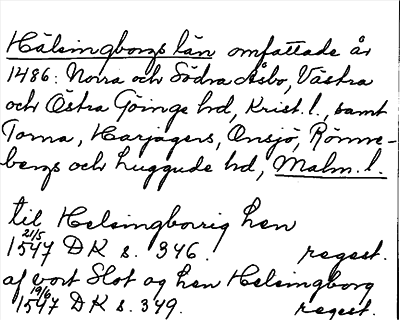 Hälsingborgs län omfattade år
1486: Norra och Södra Åsbo, Västra
och Östra Göinge hd, Krist. l., samt
Torna, Harjagers, Onsjö, Rönne-
bergs och Luggude hd, Malm. l.
til Helsingborrig hen
21/5
1547 DK s. 346. regest.
af vort Slot og hen Helsingborg
19/6
1547 DK s. 349. regest.